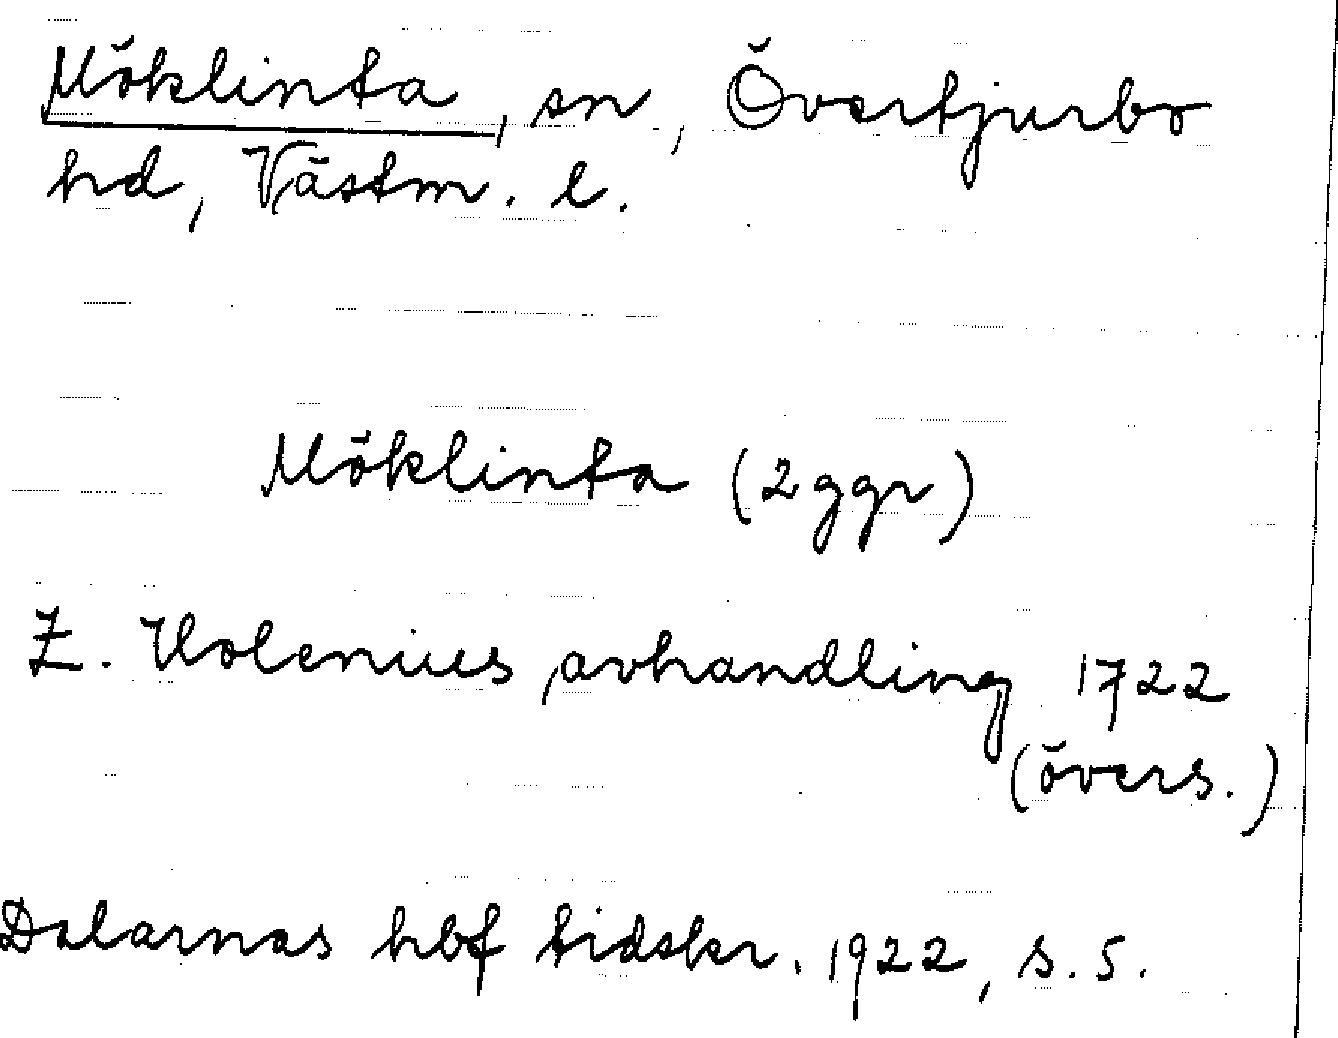 Möklinta, sn, Övertjurbo
hd, Västm. l.
Möklinta (2 ggr)
Z. Holenius, avhandling 1722
(övers.)
Dalarnas hbf tidskr. 1922, s. 5.